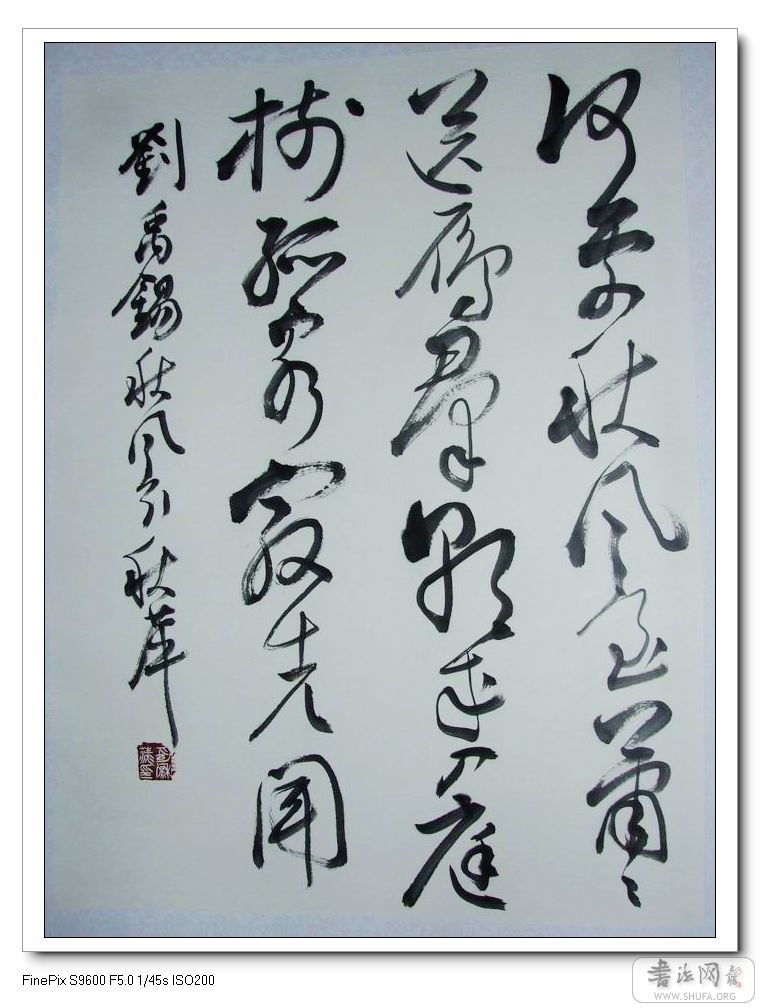 何處秋風至蕭〻
送鴈群朝來入庭
樹孤客最先聞
劉禹錫秋風引 秋萍
FinePix S9600 F5.0 1/45s ISO200
書法网
WWW.SHUFA.ORG